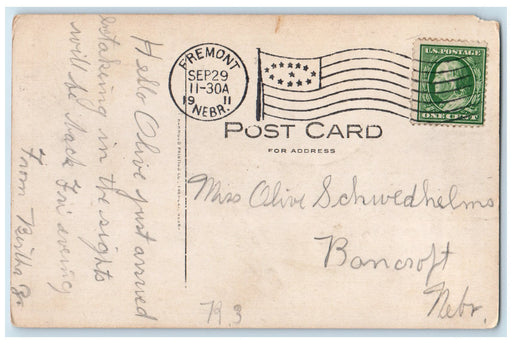 FREMONT
SEP 29
11-30A
19 11
NEBR.
U.S. POSTAGE
ONE CENT
POST CARD
FOR ADDRESS
Hello Olive just arrived
taking in the sights
will be back Fri evening
From Bertha
Miss Olive Schwedhelms
Bancroft
Nebr.
R.3